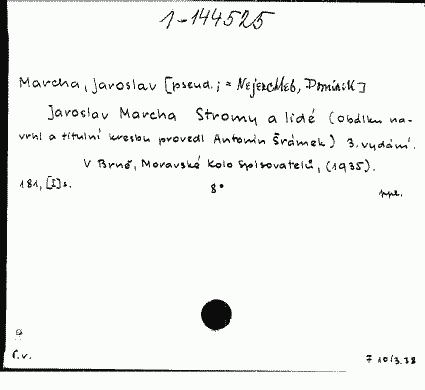 1-144525
Marcha, Jaroslav [pseud.; = Nejezchleb, Dominik]
Jaroslav Marcha Stromy a lidé (Obálku na-
vrhl a titulní kresbu provedl Antonín Šrámek) 3. vydání.
V Brně, Moravské kolo spisovatelů, (1935).
181, [I] s. 8° ppl.
r.v. 7 10/3.38